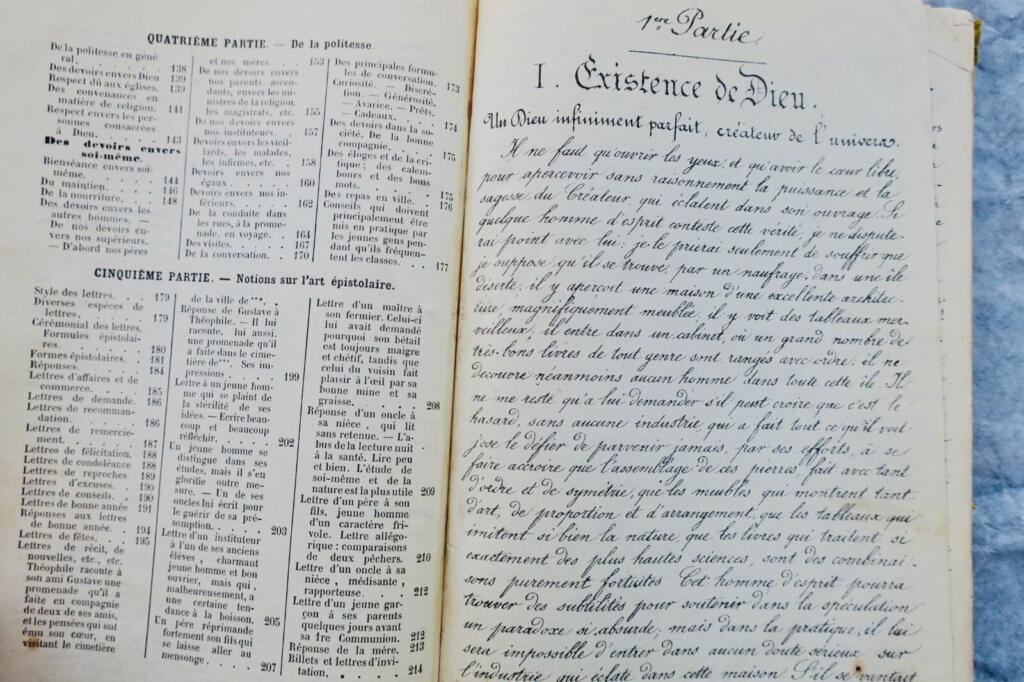 QUATRIÈME PARTIE. — De la politesse.
De la politesse en géné
ral. . . . . . . . . 138
Des devoirs envers Dieu 139
Respect dû aux églises. 139
Des convenances en
matière de religion. 141
Respect envers les per
sonnes consacrées
à Dieu. . . . . . . 143
Des devoirs envers
soi-même.
Bienséance envers soi-
même. . . . . . . 144
Du maintien. . . . . 146
De la nourriture. . . 148
Des devoirs envers les
autres hommes. —
De nos devoirs en-
vers nos supérieurs.
— D'abord nos pères
et nos mères. . . 153
De nos devoirs envers
nos parents ascen-
dants, envers les mi-
nistres de la religion,
les magistrats, etc. 155
De nos devoirs envers
nos instituteurs. . 157
Devoirs envers les vieil-
lards, les malades,
les infirmes, etc. . 158
Devoirs envers nos
égaux. . . . . . . 160
Devoirs envers nos in-
férieurs. . . . . . 162
De la conduite dans
les rues, à la prome-
nade, en voyage. . 164
Des visites. . . . . 167
De la conversation. . 170
Des principales formu-
les de conversation. 173
Curiosité. — Discré-
tion. — Générosité.
— Avarice. — Prêts.
— Cadeaux. . . . . 174
Des devoirs dans la so-
ciété. De la bonne
compagnie. . . . . 175
Des éloges et de la cri-
tique; des calem-
bours et des bons
mots. . . . . . . 175
Des repas en ville. . 176
Conseils qui doivent
principalement être
mis en pratique par
les jeunes gens pen-
dant qu'ils fréquen-
tent les classes. . . 177
CINQUIÈME PARTIE. — Notions sur l'art épistolaire.
Style des lettres. . . 179
Diverses espèces de
lettres. . . . . . . 179
Cérémonial des lettres.
Formules épistolai-
res. . . . . . . . 180
Formes épistolaires. . 181
Réponses. . . . . . 184
Lettres d'affaires et de
commerce. . . . . 185
Lettres de demande. 186
Lettres de recomman-
dation. . . . . . . 186
Lettres de remercie-
ment. . . . . . . 187
Lettres de félicitation. 188
Lettres de condoléance 188
Lettres de reproches 189
Lettres d'excuses. . . 190
Lettres de conseils. . 190
Lettres de bonne année 191
Réponses aux lettres
de bonne année. . 194
Lettres de fêtes. . . . 195
Lettres de récit, de
nouvelles, etc., etc.
Théophile raconte à
son ami Gustave une
promenade qu'il a
faite en compagnie
de deux de ses amis,
et les pensées qui ont
ému son cœur, en
visitant le cimetière
de la ville de ***.
Réponse de Gustave à
Théophile. — Il lui
raconte, lui aussi,
une promenade qu'il
a faite dans le cime-
tière de ***. Ses im-
pressions. . . . . . 199
Lettre à un jeune hom-
me qui se plaint de
la stérilité de ses
idées. — Ecrire beau-
coup et beaucoup
réfléchir. . . . . . 202
Un jeune homme se
distingue dans ses
études, mais il s'en
glorifie outre me-
sure. — Un de ses
oncles lui écrit pour
le guérir de sa pré-
somption. . . . . 203
Lettre d'un instituteur
à l'un de ses anciens
élèves, charmant
jeune homme et bon
ouvrier, mais qui,
malheureusement, a
une certaine ten-
dance à la boisson. 205
Un père réprimande
fortement son fils qui
se laisse aller au
mensonge. . . . . 207
Lettre d'un maître à
son fermier. Celui-ci
lui avait demandé
pourquoi son bétail
est toujours maigre
et chétif, tandis que
celui du voisin fait
plaisir à l'œil par sa
bonne mine et sa
graisse. . . . . . 208
Réponse d'un oncle à
sa nièce, qui lit
sans retenue. — L'a-
bus de la lecture nuit
à la santé. Lire peu
et bien. L'étude de
soi-même et de la
nature est la plus utile 209
Lettre d'un père à son
fils, jeune homme
d'un caractère fri-
vole. Lettre allégo-
rique: comparaisons
de deux pêchers. 210
Lettre d'un oncle à sa
nièce, médisante,
rapporteuse. . . . 212
Lettre d'un jeune gar-
çon à ses parents
quelques jours avant
sa 1re Communion. 212
Réponse de la mère. 213
Billets et lettres d'invi-
tation. . . . . . . 214
1ère Partie.
I. Existence de Dieu.
Un Dieu infiniment parfait, créateur de l'univers.
Il ne faut qu'ouvrir les yeux, et qu'avoir le cœur libre,
pour apercevoir sans raisonnement la puissance et la
sagesse du Créateur, qui éclatent dans son ouvrage. Si
quelque homme d'esprit conteste cette vérité, je ne dispute-
rai point avec lui; je le prierai seulement de souffrir que
je suppose qu'il se trouve, par un naufrage, dans une île
déserte, il y aperçoit une maison d'une excellente architec-
ture, magnifiquement meublée; il y voit des tableaux mer-
veilleux; il entre dans un cabinet, où un grand nombre de
très-bons livres de tout genre sont rangés avec ordre; il ne
découvre néanmoins aucun homme dans toute cette île. Il
ne me reste qu'à lui demander s'il peut croire que c'est le
hasard, sans aucune industrie, qui a fait tout ce qu'il voit:
j'ose le défier de parvenir jamais, par ses efforts, à se
faire accroire que l'assemblage de ces pierres, fait avec tant
d'ordre et de symétrie, que les meubles qui montrent tant
d'art, de proportion et d'arrangement, que les tableaux qui
imitent si bien la nature, que les livres qui traitent si
exactement des plus hautes sciences, sont des combinai-
sons purement fortuites. Cet homme d'esprit pourra
trouver des subtilités pour soutenir dans la spéculation
un paradoxe si absurde; mais dans la pratique, il lui
sera impossible d'entrer dans aucun doute sérieux sur
l'industrie qui éclate dans cette maison. S'il se vantait